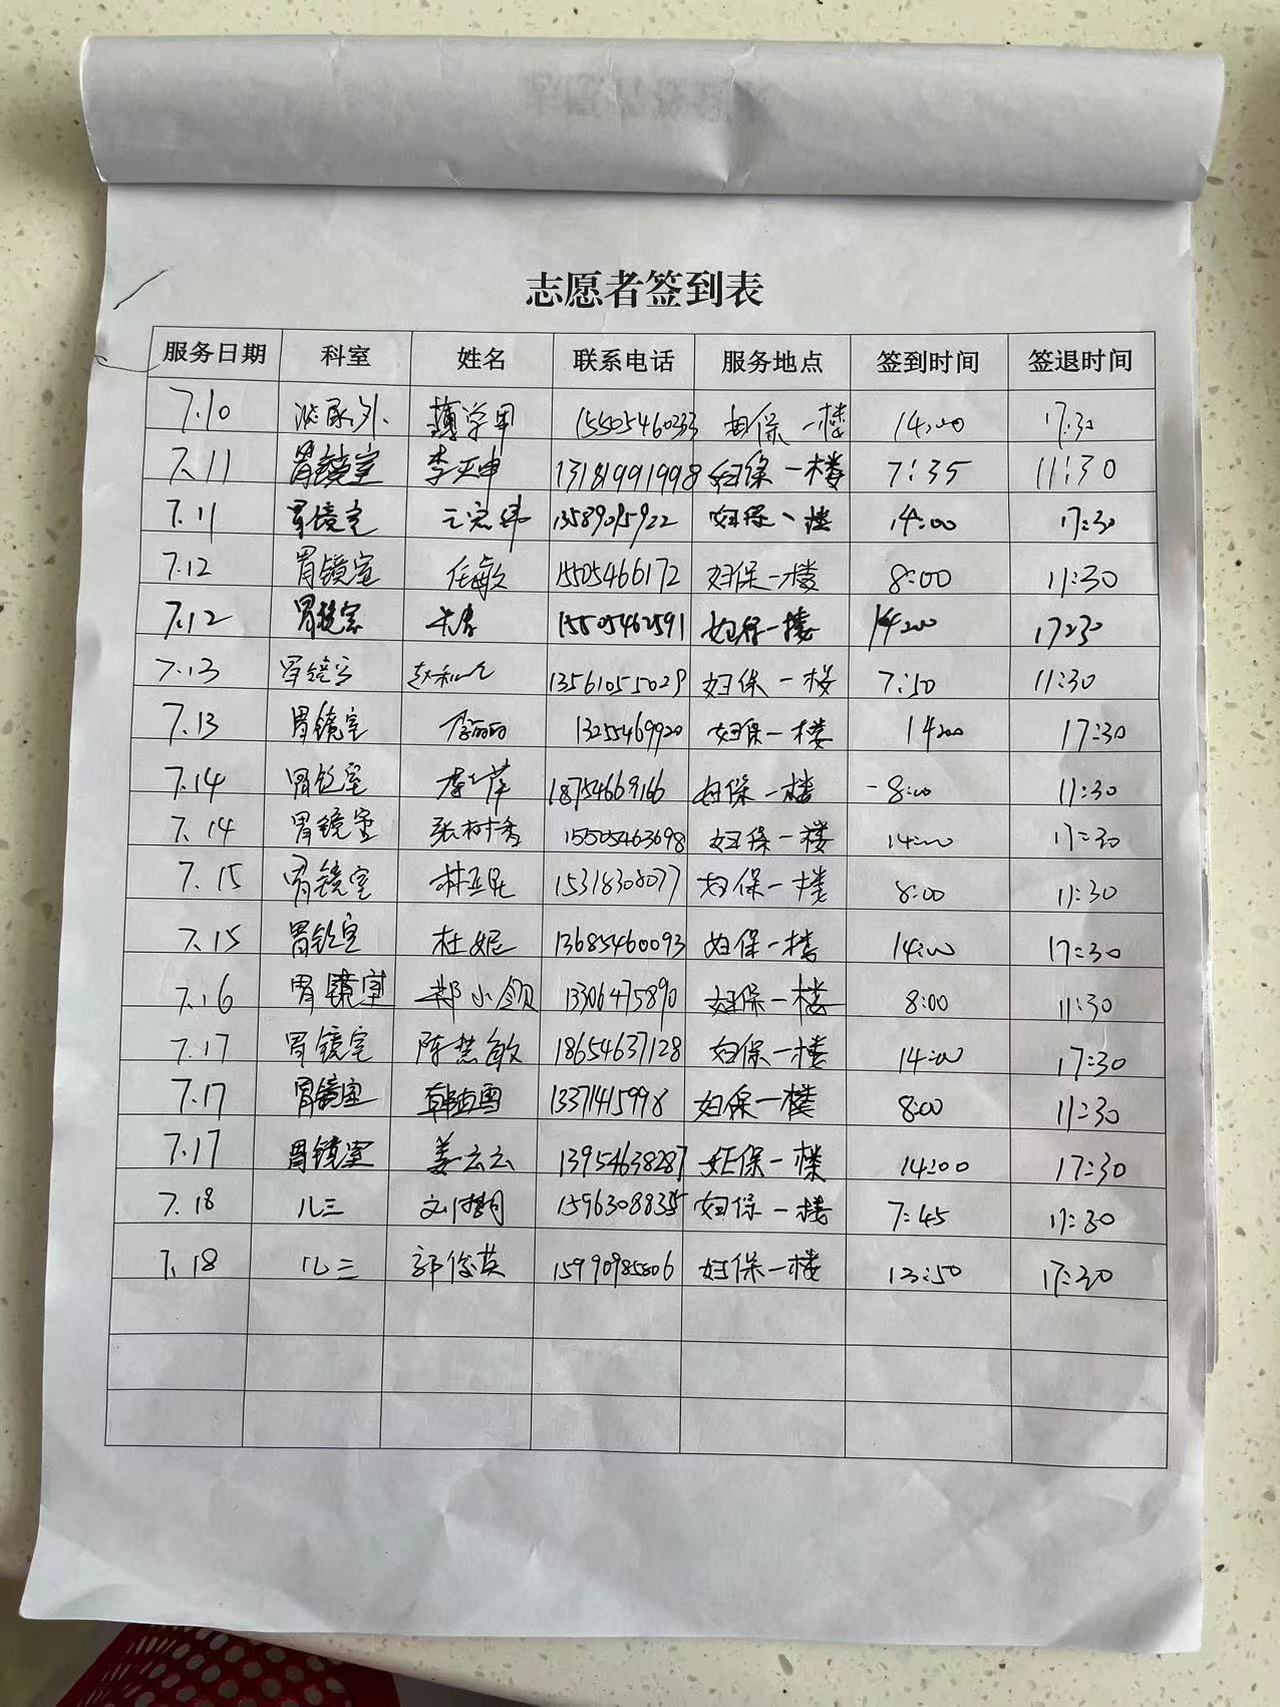 志愿者签到表
服务日期 科室 姓名 联系电话 服务地点 签到时间 签退时间
7.10 泌尿外 薄学甲 15505460233 妇保一楼 14:00 17:30
7.11 胃镜室 13181991998 妇保一楼 7:35 11:30
7.11 胃镜室 13589095922 妇保一楼 14:00 17:30
7.12 胃镜室 任敏 15505466172 妇保一楼 8:00 11:30
7.12 胃镜室 15505462591 妇保一楼 14:00 17:30
7.13 胃镜室 13561055029 妇保一楼 7:50 11:30
7.13 胃镜室 李丽丽 13255469920 妇保一楼 14:00 17:30
7.14 胃镜室 18754669166 妇保一楼 8:00 11:30
7.14 胃镜室 张树香 15505463698 妇保一楼 14:00 17:30
7.15 胃镜室 15318308077 妇保一楼 8:00 11:30
7.15 胃镜室 杜妮 13685460093 妇保一楼 14:00 17:30
7.16 胃镜室 郑小颂 13306475890 妇保一楼 8:00 11:30
7.17 胃镜室 陈慧敏 18654637128 妇保一楼 14:00 17:30
7.17 胃镜室 13371415998 妇保一楼 8:00 11:30
7.17 胃镜室 姜云云 13954638287 妇保一楼 14:00 17:30
7.18 儿三 15963088355 妇保一楼 7:45 11:30
7.18 儿三 郭俊英 15990985806 妇保一楼 13:50 17:30